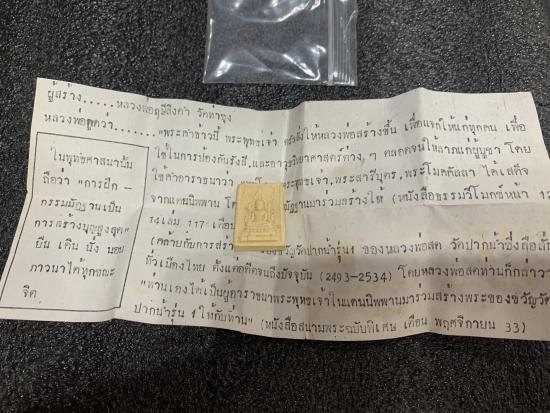 ผู้สร้าง.....หลวงพ่อฤๅษีลิงดำ วัดท่าซุง
หลวงพ่อพูดว่า......"พระคำข้าวนี้ พระพุทธเจ้า ให้หลวงพ่อสร้างขึ้น เพื่อแจกให้แก่ทุกคน เพื่อ
ใช้ในการป้องกันรังสี,และอาวุธวิทยาศาสตร์ต่าง ๆ ตลอดจนให้ลาภแก่ผู้บูชา โดย
ใช้คำอาราธนาว่า พระพุทธเจ้า,พระสารีบุตร, พระโมคคัลลา ได้เสด็จ
จากแดนนิพพาน มาร่วมสร้างให้ (หนังสือธรรมวิโมกข์หน้า
14เล่ม 117 เดือน
(คล้ายกับการสร้าง ของขวัญปากน้ำรุ่น1 ของหลวงพ่อสด วัดปากน้ำซึ่ง
ทั่วเมืองไทย ตั้งแต่อดีตจนถึงปัจจุบัน (2493-2534) โดยหลวงพ่อสดท่านก็กล่าวว่า
"ท่านเองได้เป็นผู้อาราธนาพระพุทธเจ้าในแดนนิพพานมาร่วมสร้างพระของขวัญวัด
ปากน้ำรุ่น 1 ให้กับท่าน" (หนังสือสนามพระฉบับพิเศษ เดือน พฤศจิกายน 33)
ในพุทธศาสนานั้น
ถือว่า "การฝึก-
กรรมมัฏฐานเป็น
การสร้างบุญสูงสุด"
ยืน เดิน นั่ง นอน
ภาวนาได้ทุกขณะ
จิต